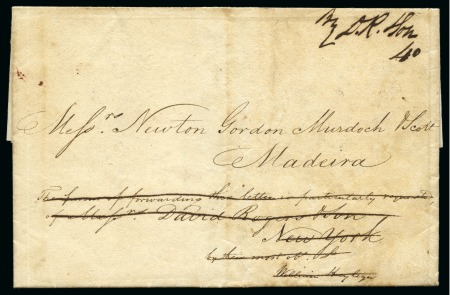 By D. R. & Son
40
Messrs. Newton Gordon Murdoch & Scott
Madeira
The favor of forwarding this letter is particularly requested
of Messrs. David Rogers & Son
New York
by their most ob. St.
William